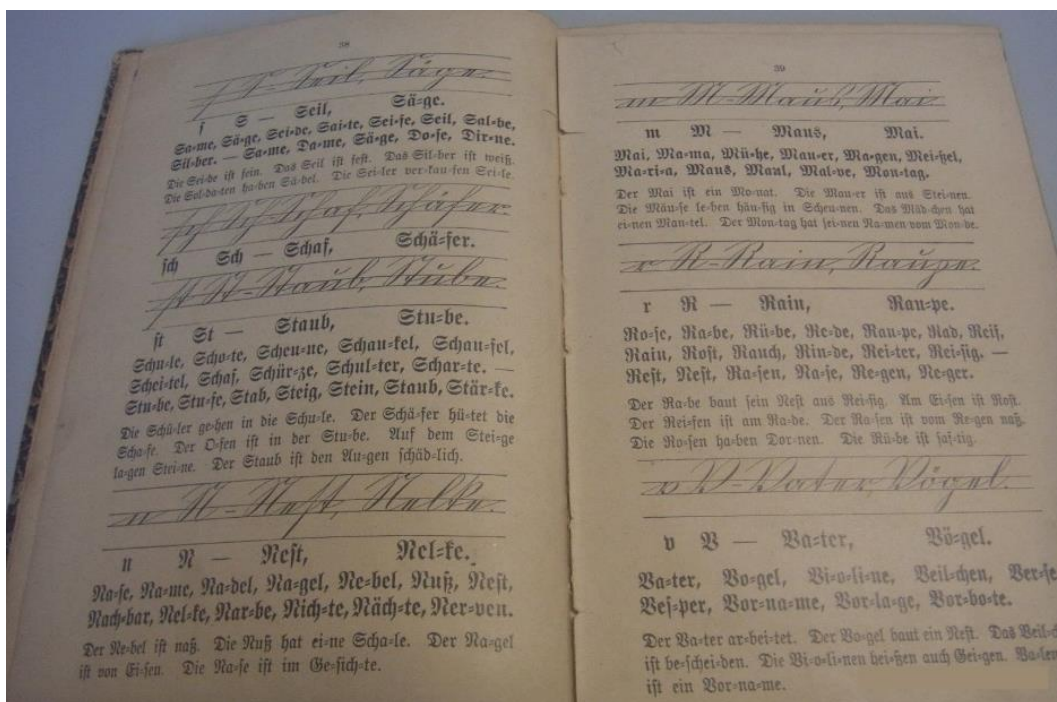 38
s S - Seil, Säge.
s S — Seil, Sä=ge.
Sa=me, Sä=ge, Sei=de, Sai=te, Sei=fe, Seil, Sal=be,
Sil=ber. — Sa=me, Da=me, Sä=ge, Do=se, Dir=ne.
Die Sei=de ist fein. Das Seil ist fest. Das Sil=ber ist weiß.
Die Sol=da=ten ha=ben Sä=bel. Die Sei=ler ver=kau=fen Sei=le.
sch Sch - Schaf, Schäfer.
sch Sch — Schaf, Schä=fer.
st St - Staub, Stube.
st St — Staub, Stu=be.
Schu=le, Scho=te, Scheu=ne, Schau=kel, Schau=fel,
Schei=tel, Schaf, Schür=ze, Schul=ter, Schar=te. —
Stu=be, Stu=fe, Stab, Steig, Stein, Staub, Stär=ke.
Die Schü=ler ge=hen in die Schu=le. Der Schä=fer hü=tet die
Scha=fe. Der O=fen ist in der Stu=be. Auf dem Stei=ge
la=gen Stei=ne. Der Staub ist den Au=gen schäd=lich.
n N - Nest, Nelke.
n N — Nest, Nel=ke.
Na=se, Na=me, Na=del, Na=gel, Ne=bel, Nuß, Nest,
Nach=bar, Nel=ke, Nar=be, Nich=te, Näch=te, Ner=ven.
Der Ne=bel ist naß. Die Nuß hat ei=ne Scha=le. Der Na=gel
ist von Ei=sen. Die Na=se ist im Ge=sich=te.
39
m M - Maus, Mai.
m M — Maus, Mai.
Mai, Ma=ma, Mü=he, Mau=er, Ma=gen, Mei=ßel,
Ma=ri=a, Maus, Maul, Mal=ve, Mon=tag.
Der Mai ist ein Mo=nat. Die Mau=er ist aus Stei=nen.
Die Mäu=se le=ben häu=fig in Scheu=nen. Das Mäd=chen hat
ei=nen Man=tel. Der Mon=tag hat sei=nen Na=men vom Mon=de.
r R - Rain, Raupe.
r R — Rain, Rau=pe.
Ro=se, Ra=be, Rü=be, Re=de, Rau=pe, Rad, Reif,
Rain, Rost, Rauch, Rin=de, Rei=ter, Rei=sig. —
Rest, Nest, Ra=sen, Na=se, Re=gen, Ne=ger.
Der Ra=be baut sein Nest aus Rei=sig. Am Ei=sen ist Rost.
Der Rei=fen ist am Ra=de. Der Ra=sen ist vom Re=gen naß.
Die Ro=sen ha=ben Dor=nen. Die Rü=be ist saf=tig.
v V - Vater, Vögel.
v V — Va=ter, Vö=gel.
Va=ter, Vo=gel, Vi=o=li=ne, Veil=chen, Ver=se
Ves=per, Vor=na=me, Vor=la=ge, Vor=bo=te.
Der Va=ter ar=bei=tet. Der Vo=gel baut ein Nest. Das Veil=c
ist be=schei=den. Die Vi=o=li=nen hei=ßen auch Gei=gen. Va=len
ist ein Vor=na=me.